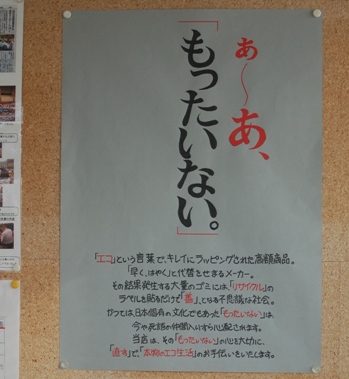 あ～あ、
「もったいない。」
「エコ」という言葉で、キレイにラッピングされた高額商品。
「早く、はやく」と代替をせまるメーカー。
その結果発生する大量のゴミには、「リサイクル」の
ラベルを貼るだけで「善」となる不思議な社会。
かつては、日本固有の文化でもあった「もったいない」は、
今や死語の仲間入りすら心配されます。
当店は、その「もったいない」の心を大切に、
「直す」で、「本物のエコ生活」のお手伝いをいたします。